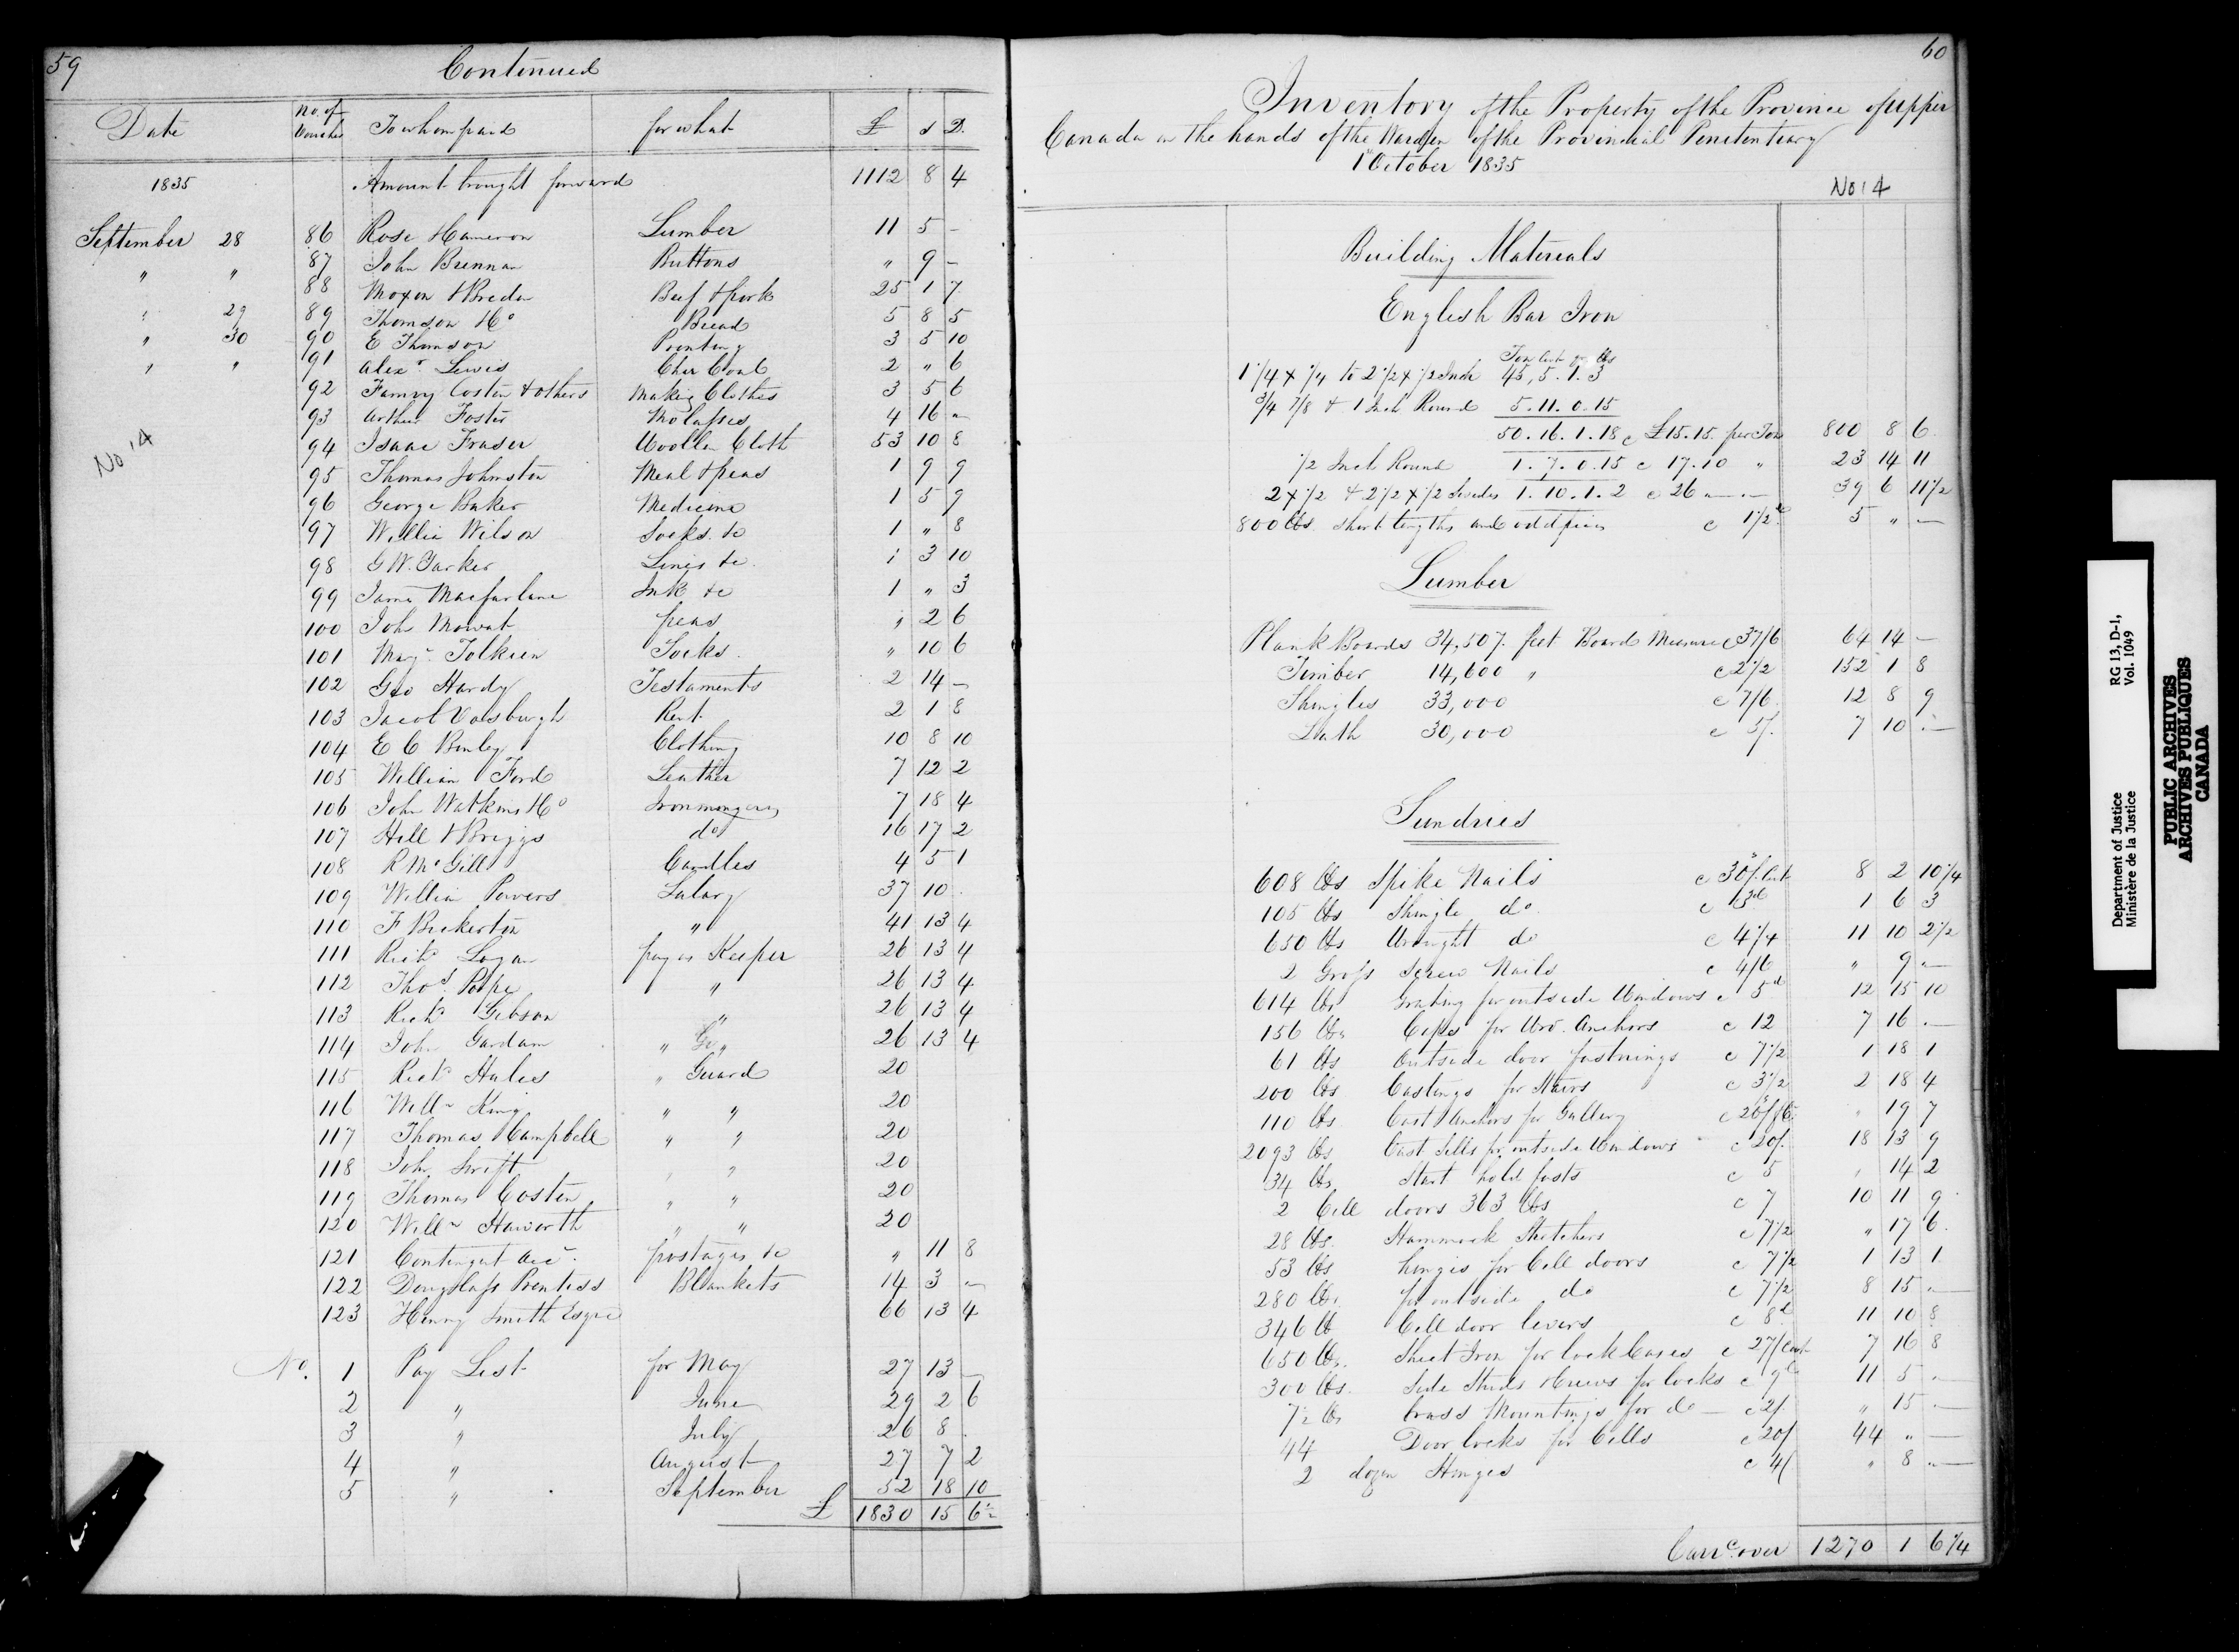 59
Continued
Date No. of Voucher To whom paid for what £ s D.
1835 Amount brought forward 1112 8 4
September 28 86 Rose Cameron Lumber 11 5 -
" " 87 John Brennan Buttons " 9 -
88 Moxon & Breden Beef & pork 25 1 7
" 29 89 Thomson & Co Bread 5 8 5
" 30 90 E Thomson Printing 3 5 10
" " 91 Alexr Lewis Char Coal 2 " 6
92 Fanny Coston & others Making Clothes 3 5 6
93 Arthur Foster Molasses 4 16 -
No 14 94 Isaac Fraser Woollen Cloth 53 10 8
95 Thomas Johnston Meal & peas 1 9 9
96 George Baker Medicine 1 5 9
97 William Wilson Socks &c 1 " 8
98 G W. Yarker Lines &c 1 3 10
99 James Macfarlane Ink &c 1 " 3
100 John Mowat peas " 2 6
101 Tolkien Socks " 10 6
102 Geo Hardy Testaments 2 14 -
103 Jacob Vosburgh Rent 2 1 8
104 E C Bonley Clothing 10 8 10
105 William Ford Leather 7 12 2
106 John Watkins & Co Ironmongery 7 18 4
107 Hill & Briggs do 16 17 2
108 R McGill Candles 4 5 1
109 William Powers Salary 37 10
110 F Bickerton " 41 13 4
111 Richd Logan pay as Keeper 26 13 4
112 Thos Pope " 26 13 4
113 Richd Gibson " 26 13 4
114 John Gardam " " 26 13 4
115 Richd Hales " Guard 20
116 Willm King " " 20
117 Thomas Campbell " " 20
118 John Swift " " 20
119 Thomas Costen " " 20
120 Willm Haworth " " 20
121 Contingent Acct postages &c " 11 8
122 Douglass Prentiss Blankets 14 3 -
123 Henry Smith Esqre 66 13 4
No. 1 Pay List for May 27 13 -
2 " June 29 2 6
3 " July 26 8
4 " August 27 7 2
5 " September 52 18 10
£ 1830 15 6½
60
Inventory of the Property of the Province of Upper
Canada in the hands of the Warden of the Provincial Penitentiary
1st October 1835
No 14
Building Materials
English Bar Iron
Ton Cwt qr lbs
1 1/4 x 1/4 to 2 1/2 x 1/2 Inch 45, 5. 1. 3
3/4 7/8 & 1 Inch Round 5. 11. 0. 15
50. 16. 1. 18 c £15. 15. per Ton 800 8 6
1/2 Inch Round 1. 7. 0. 15 c 17. 10 " 23 14 11
2 x 1/2 & 2 1/2 x 1/2 Swedes 1. 10. 1. 2 c 26 - - 39 6 11 1/2
800 lbs. short lengths and odd pieces c 1 1/2d 5 " -
Lumber
Plank Boards 34,507. feet Board Measure c 37/6 64 14 -
Timber 14,600 " c 2 1/2 152 1 8
Shingles 33,000 c 7/6 12 8 9
Lath 30,000 c 5/. 7 10 -
Sundries
608 lbs Spike Nails c 30/. Cwt 8 2 10 1/4
105 lbs Shingle do c 3d 1 6 3
650 lbs Wrought do c 4 1/4 11 10 2 1/2
2 Gross Screw Nails c 4/6 " 9 -
614 lbs Grating for outside Windows c 5d 12 15 10
156 lbs for Anchors c 12 7 16 -
61 lbs Outside door fastnings c 7 1/2 1 18 1
200 lbs Castings for Stairs c 3 1/2 2 18 4
110 lbs Cast Anchors for Gallery c 20/ 19 7
2093 lbs Cast Sills for outside Windows c 20/. 18 13 9
34 lbs hold fasts c 5 " 14 2
2 Cell doors 363 lbs c 7 10 11 9
28 lbs. Hammock Stretchers c 7 1/2 " 17 6
53 lbs hinges for Cell doors c 7 1/2 1 13 1
280 lbs. for outside do c 7 1/2 8 15 -
346 lb Cell door levers c 8d 11 10 8
650 lbs. Sheet Iron for lock Cases c 27/ Cwt 7 16 8
300 lbs. Side Studs & screws for locks c 9d 11 5 -
7½ lbs brass Mountings for do - c 2/. " 15 -
44 Door locks for Cells c 20/ 44 " -
2 dozen Hinges c 4/ " 8 -
Carrd over 1270 1 6 1/4
RG 13, D-1,
Vol. 1049
Department of Justice
Ministère de la Justice
PUBLIC ARCHIVES
ARCHIVES PUBLIQUES
CANADA